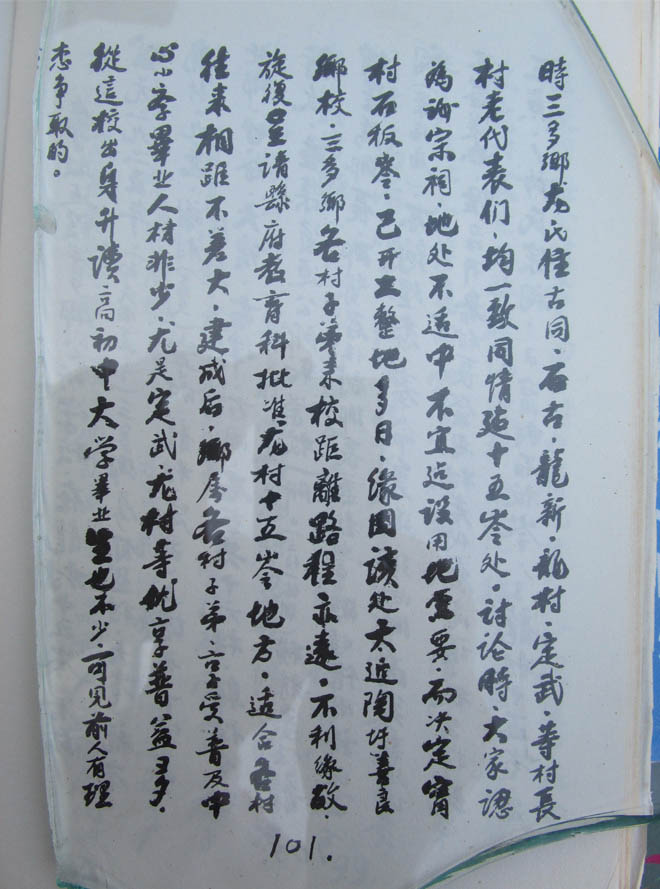 時三多鄉龙氏恆古同、石古、龍新、龍村、定武、等村長
村老代表们、均一致同情造十五岺处。討论時、大家認
為謝宗祠、地处不适中不宜造设用地需要。而决定甯
村石板岺、已开工整地多日、缘因該处太近陶圩善良
鄉校、三多鄉各村子弟来校距離路程亦遠、不利缘故、
旋復呈請縣府教育科批准龙村十五岺地方、适合各村
往来相距不差大、建成后、鄉属各村子弟、享受普及中
心小学畢业人材非少、尤是定武、龙村等就享普益多多、
從這校出身升讀、高初中大学畢业生也不少、可見前人有理
志争取的。
101.